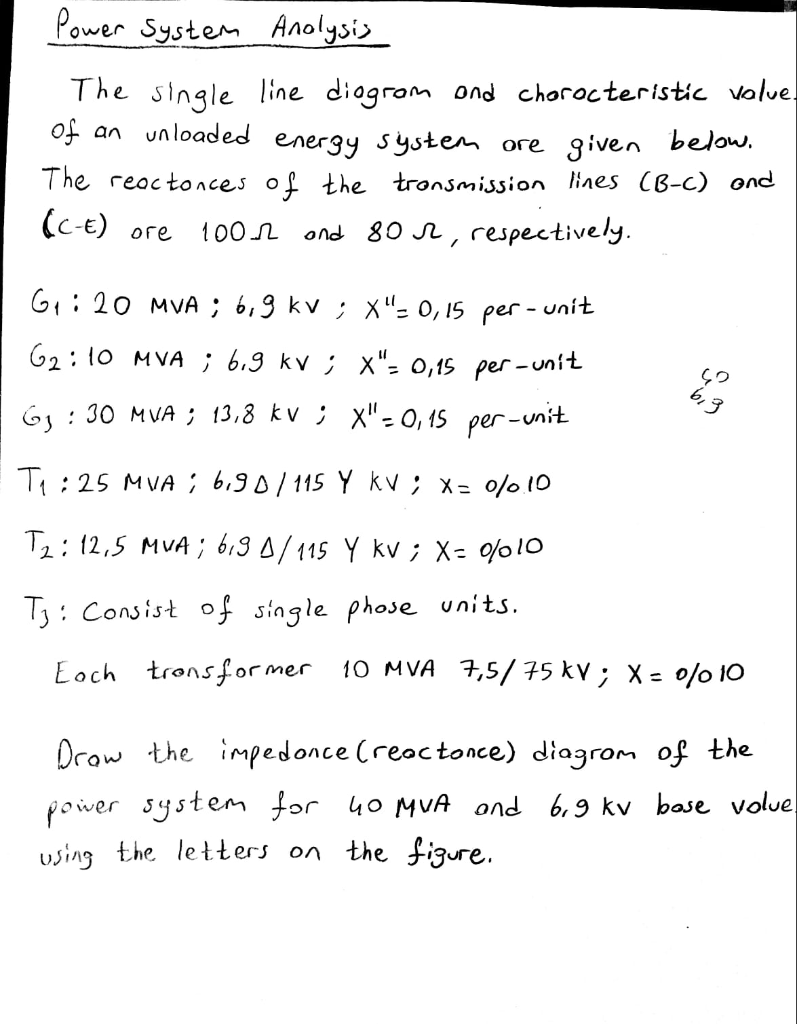 Power System Analysis
The single line diagram and characteristic value
of an unloaded energy system are given below.
The reactances of the transmission lines (B-C) and
(C-E) are 100 Ω and 80 Ω, respectively.
G1 : 20 MVA ; 6,9 kV ; X"= 0,15 per-unit
G2 : 10 MVA ; 6.9 kV ; X"= 0,15 per-unit
6,9
G3 : 30 MVA ; 13,8 kV ; X"= 0,15 per-unit
T1 : 25 MVA ; 6.9 Δ/115 Y kV ; X= %10
T2 : 12,5 MVA ; 6,9 Δ/115 Y kV ; X= %10
T3 : Consist of single phase units.
Each transformer 10 MVA 7,5/75 kV ; X= %10
Draw the impedance (reactance) diagram of the
power system for 40 MVA and 6,9 kV base value
using the letters on the figure.